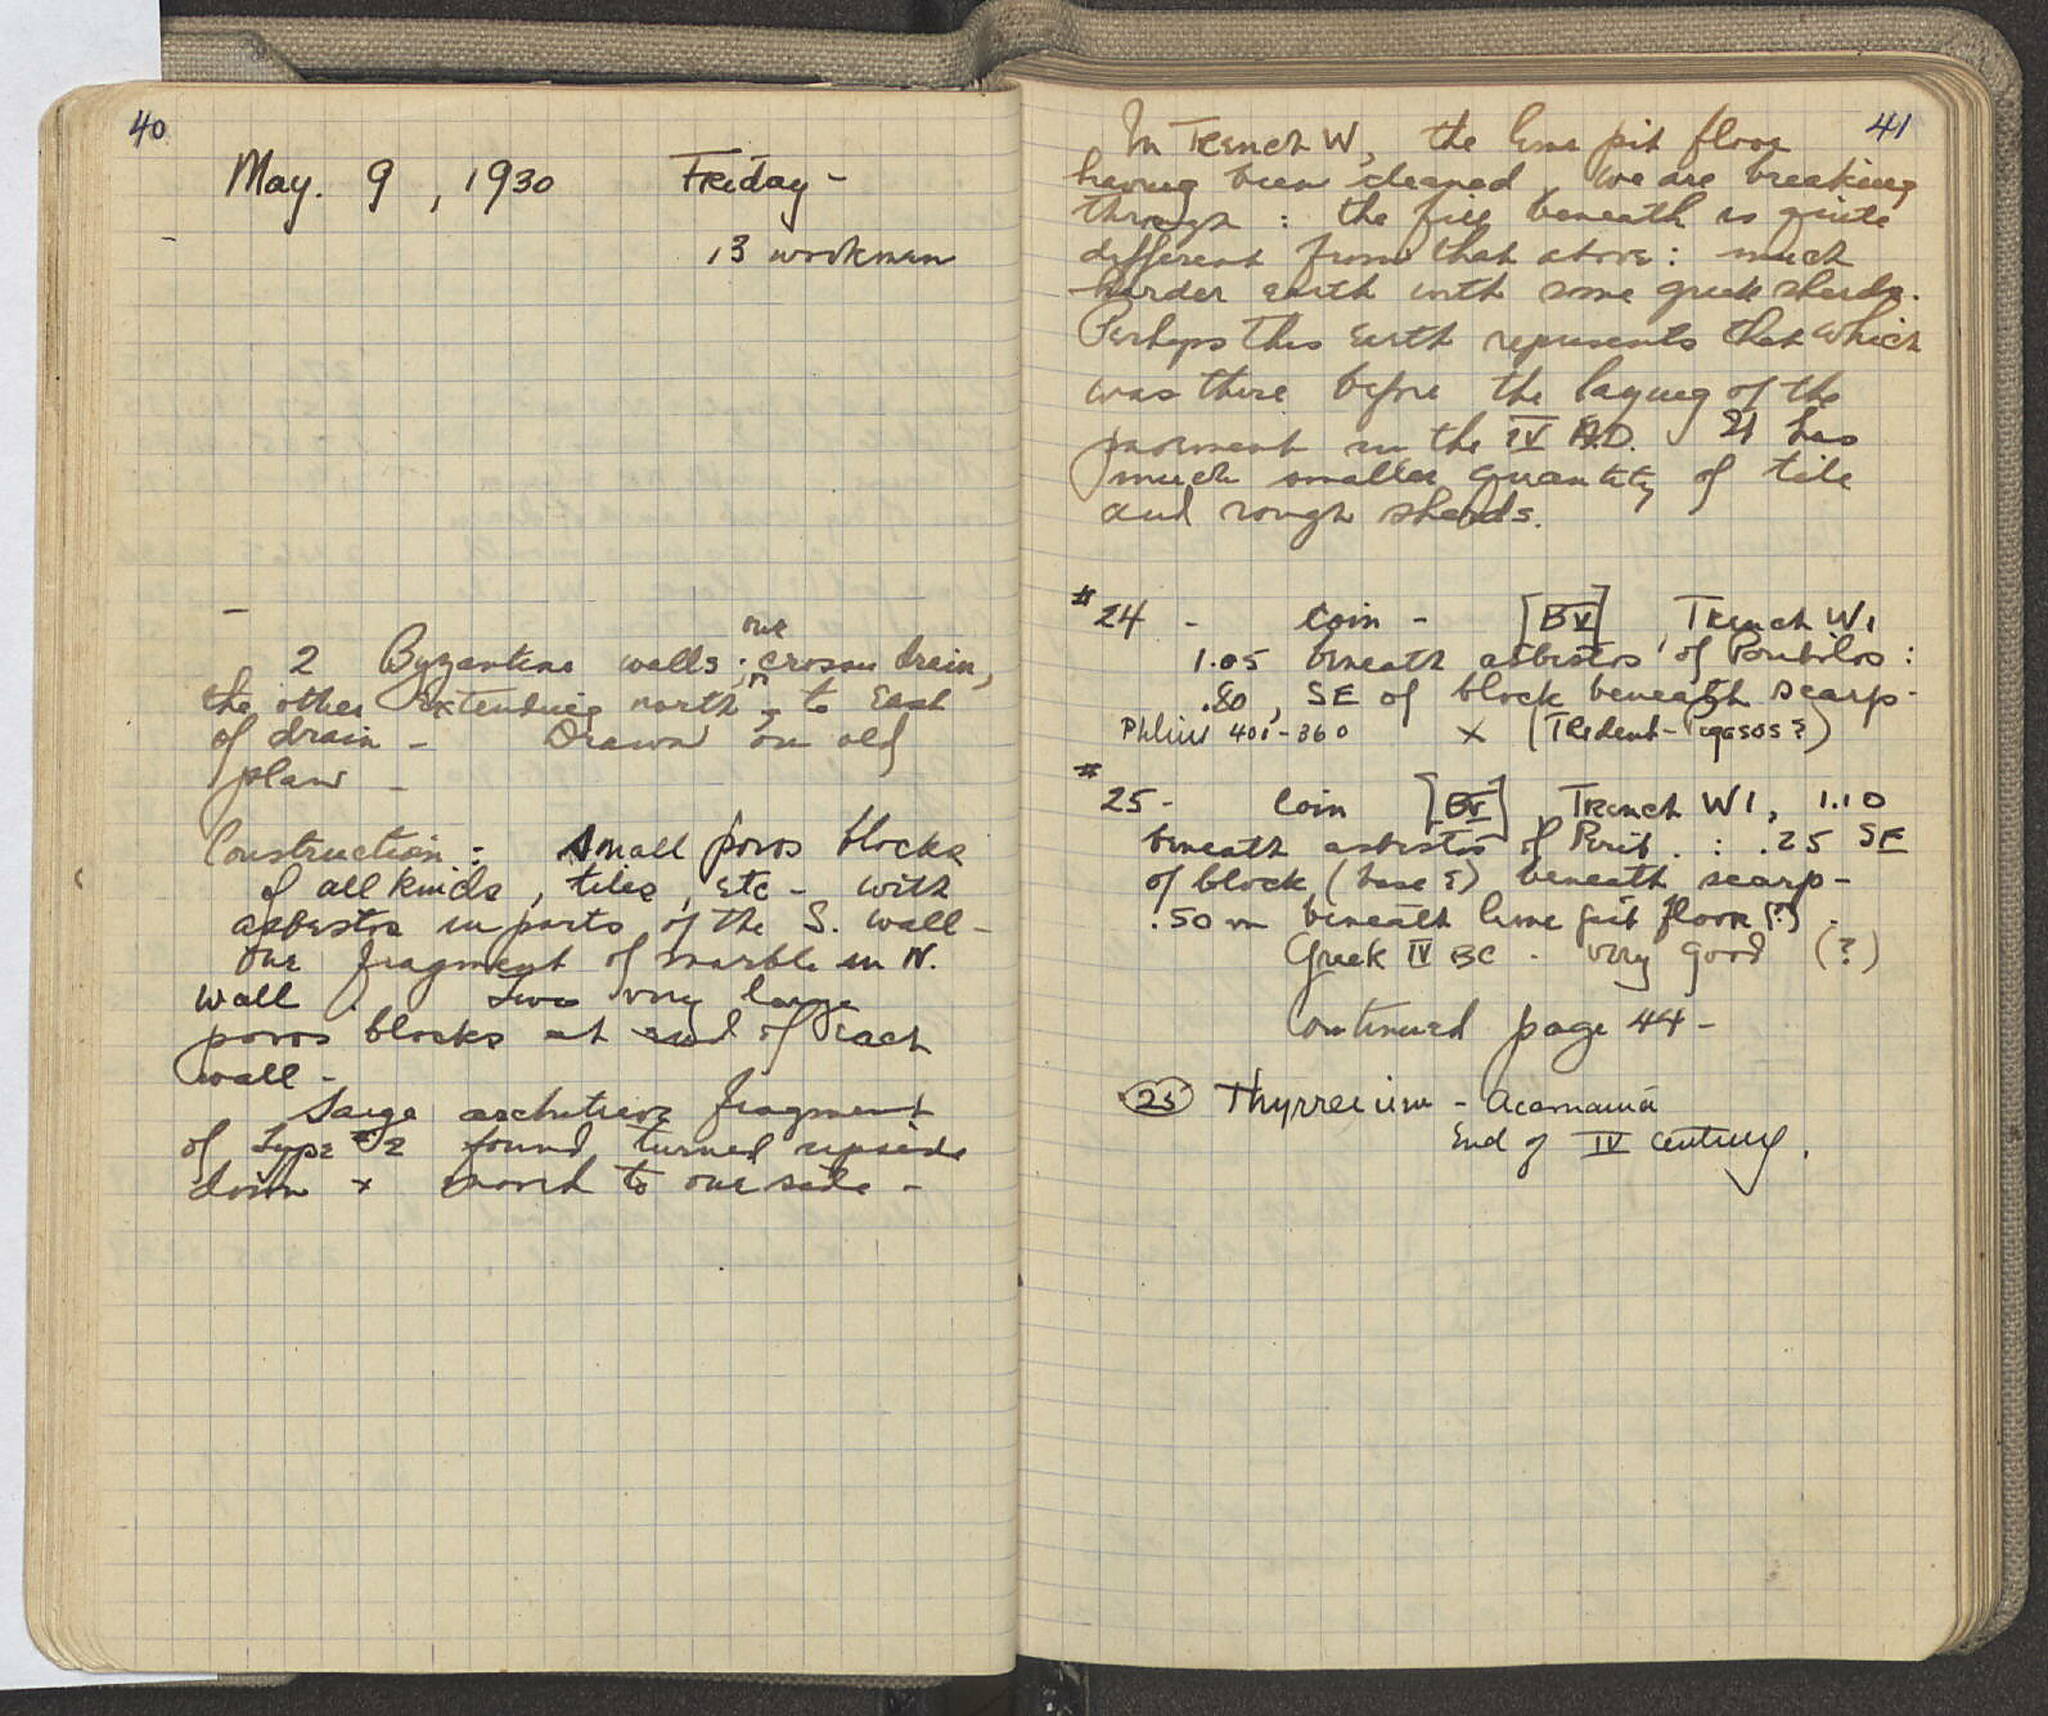 40
May. 9, 1930 Friday -
13 workmen
2 Byzantine walls; one crosses drain,
the other extending north - to East
of drain - Drawn on old
plan -
Construction: small poros blocks
of all kinds, tiles, etc - with
asbestos in parts of the S. wall -
one fragment of marble in N.
wall. Two very large
poros blocks at end of each
wall -
Large architrave fragment
of Type #2 found turned upside
down + moved to one side -
41
In Trench W, the lime pit floor
having been cleaned, we are breaking
through: the fill beneath is quite
different from that above: much
harder earth with some greek sherds.
Perhaps this earth represents that which
was there before the laying of the
pavement in the IV A.D. It has
much smaller quantity of tile
and rough sherds.
#24 - Coin - [B V] Trench W1
1.05 beneath asbestos of Peribolos:
.80, SE of block beneath scarp -
Phlius 401-360 X (Trident - Pegasos?)
#25 - Coin [B V] Trench W1, 1.10
beneath asbestos of Perib. : .25 SE
of block (base?) beneath scarp -
.50 m beneath lime pit floor (?).
Greek IV BC - very good (?)
Continued page 44 -
(25) Thyrreium - Acarnania
End of IV century.